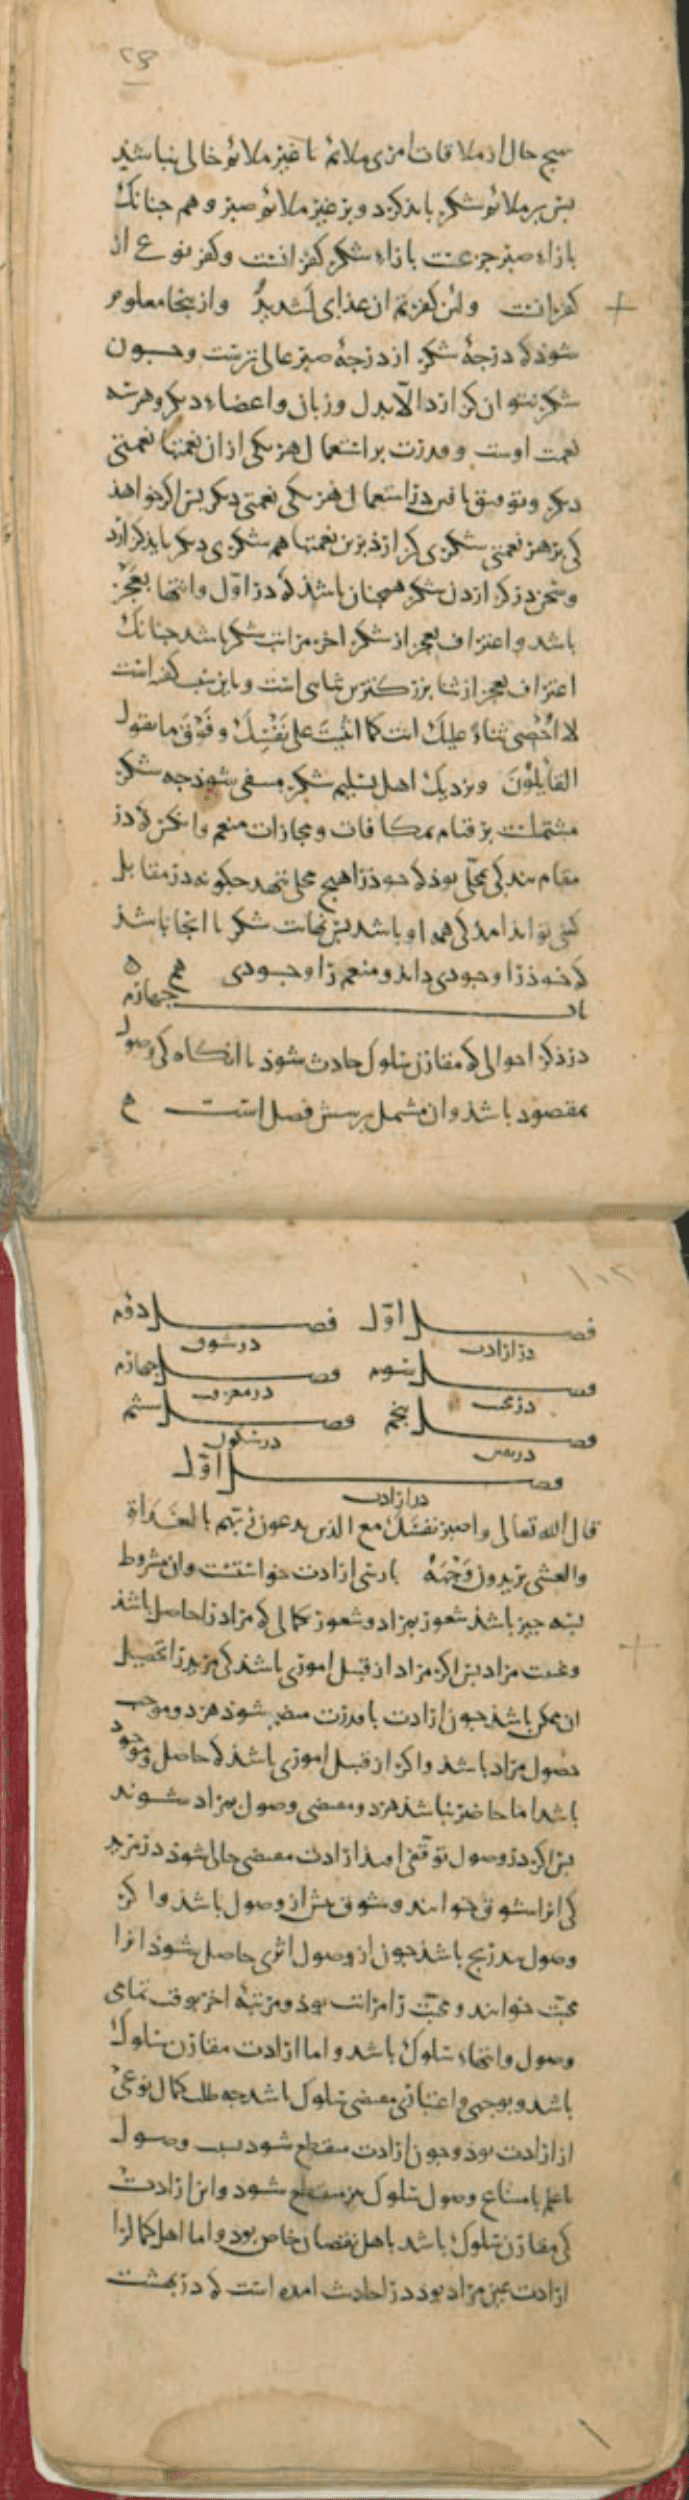 هیچ حال از ملاقات امری ملائم یا غیر ملائم خالی نباشد
بس بر ملائم شکر باید کرد و بر غیر ملائم صبر و هم جنانک
بازاء صبر جزعست بازاء شکر کفرانست و کفر نوعی از
کفرانست ولئن کفرتم ان عذابی لشدید و از ینجا معلوم
شوذ که درجهٔ شکر از درجهٔ صبر عالی ترست و جون
شکر نتوان کزارد الا بدل و زبان و اعضاء دیکر و هر سه
نعمت اوست و قدرت بر استعمال هر یکی از ان نعمتها نعمتی
دیکر و توفیق یافتن در استعمال هر یکی نعمتی دیکر بس اکر خواهذ
کی بر هر نعمتی شکری کزارذ برین نعمتها هم شکری دیکر باید کزارد
و سخن در کزاردن شکر همچنان باشذ که در اول و انتها بعجز
باشد و اعتراف بعجز از شکر اخر مراتب شکر باشد جنانک
اعتراف بعجز از ثنا بزرکترین ثنائی است و باین سبب کفته است
لا احصی ثناء علیک انت کما اثنیت علی نفسک و فوق ما یقول
القایلون و نزدیک اهل تسلیم شکر منتفی شوذ جه شکر
مشتملست بر قیام بمکافات و مجازات منعم وانکس که در
مقام بندکی بمحلی بوذ که خوذ را هیچ محلی ننهد جکونه در مقابل
کسی تواند امد کی همه او باشد بس نهایت شکر تا انجا باشذ
که خوذ را وجودی داند و منعم را وجودی
باب جهارم
در ذکر احوالی که مقارن سلوک حادث شوذ تا انکاه کی وصول
بمقصود باشذ وان مشتمل بر شش فصل است
۱۰۲
فصل اول فصل دوم
در ارادت در شوق
فصل سوم فصل جهارم
در محبت در معرفت
فصل بنجم فصل ششم
در یقین در سکون
فصل اول
در ارادت
قال الله تعالی واصبر نفسک مع الذین یدعون ربهم بالغداة
والعشی یریدون وجهه بارسی ارادت خواستنست وان مشروط
بسه جیز باشذ شعور بمراد و شعور بکمالی که مراد را حاصل باشذ
وغیبت مراد بس اکر مراد از قبیل اموری باشذ کی مرید را تحصیل
ان ممکن باشذ جون ارادت با قدرت منضم شوذ هر دو موجب
حصول مراد باشذ واکر از قبیل اموری باشذ که حاصل و موجود
باشد اما حاضر نباشذ هر دو مقتضی وصول بمراد شوند
بس اکر در وصول توقفی افتد ارادت مقتضی حالی شوذ در مرید
کی انرا شوق خوانند و شوق بیش از وصول باشذ و اکر
وصول بتدریج باشذ جون از وصول اثری حاصل شوذ انرا
محبت خوانند و محبت را مراتب بوذ و مرتبهٔ اخر بوقت تمامی
وصول و انتهاء سلوک باشد و اما ارادت مقارن سلوک
باشد و بوجهی و اعتباری مقتضی سلوک باشد جه طلب کمال نوعی
از ارادت بوذ و جون ارادت منقطع شود بسبب وصول
یا علم بامتناع وصول سلوک نیز منقطع شود و این ارادت
کی مقارن سلوک باشد باهل نقصان خاص بود و اما اهل کمال را
ارادت عین مراد بود در احادیث امده است که در بهشت